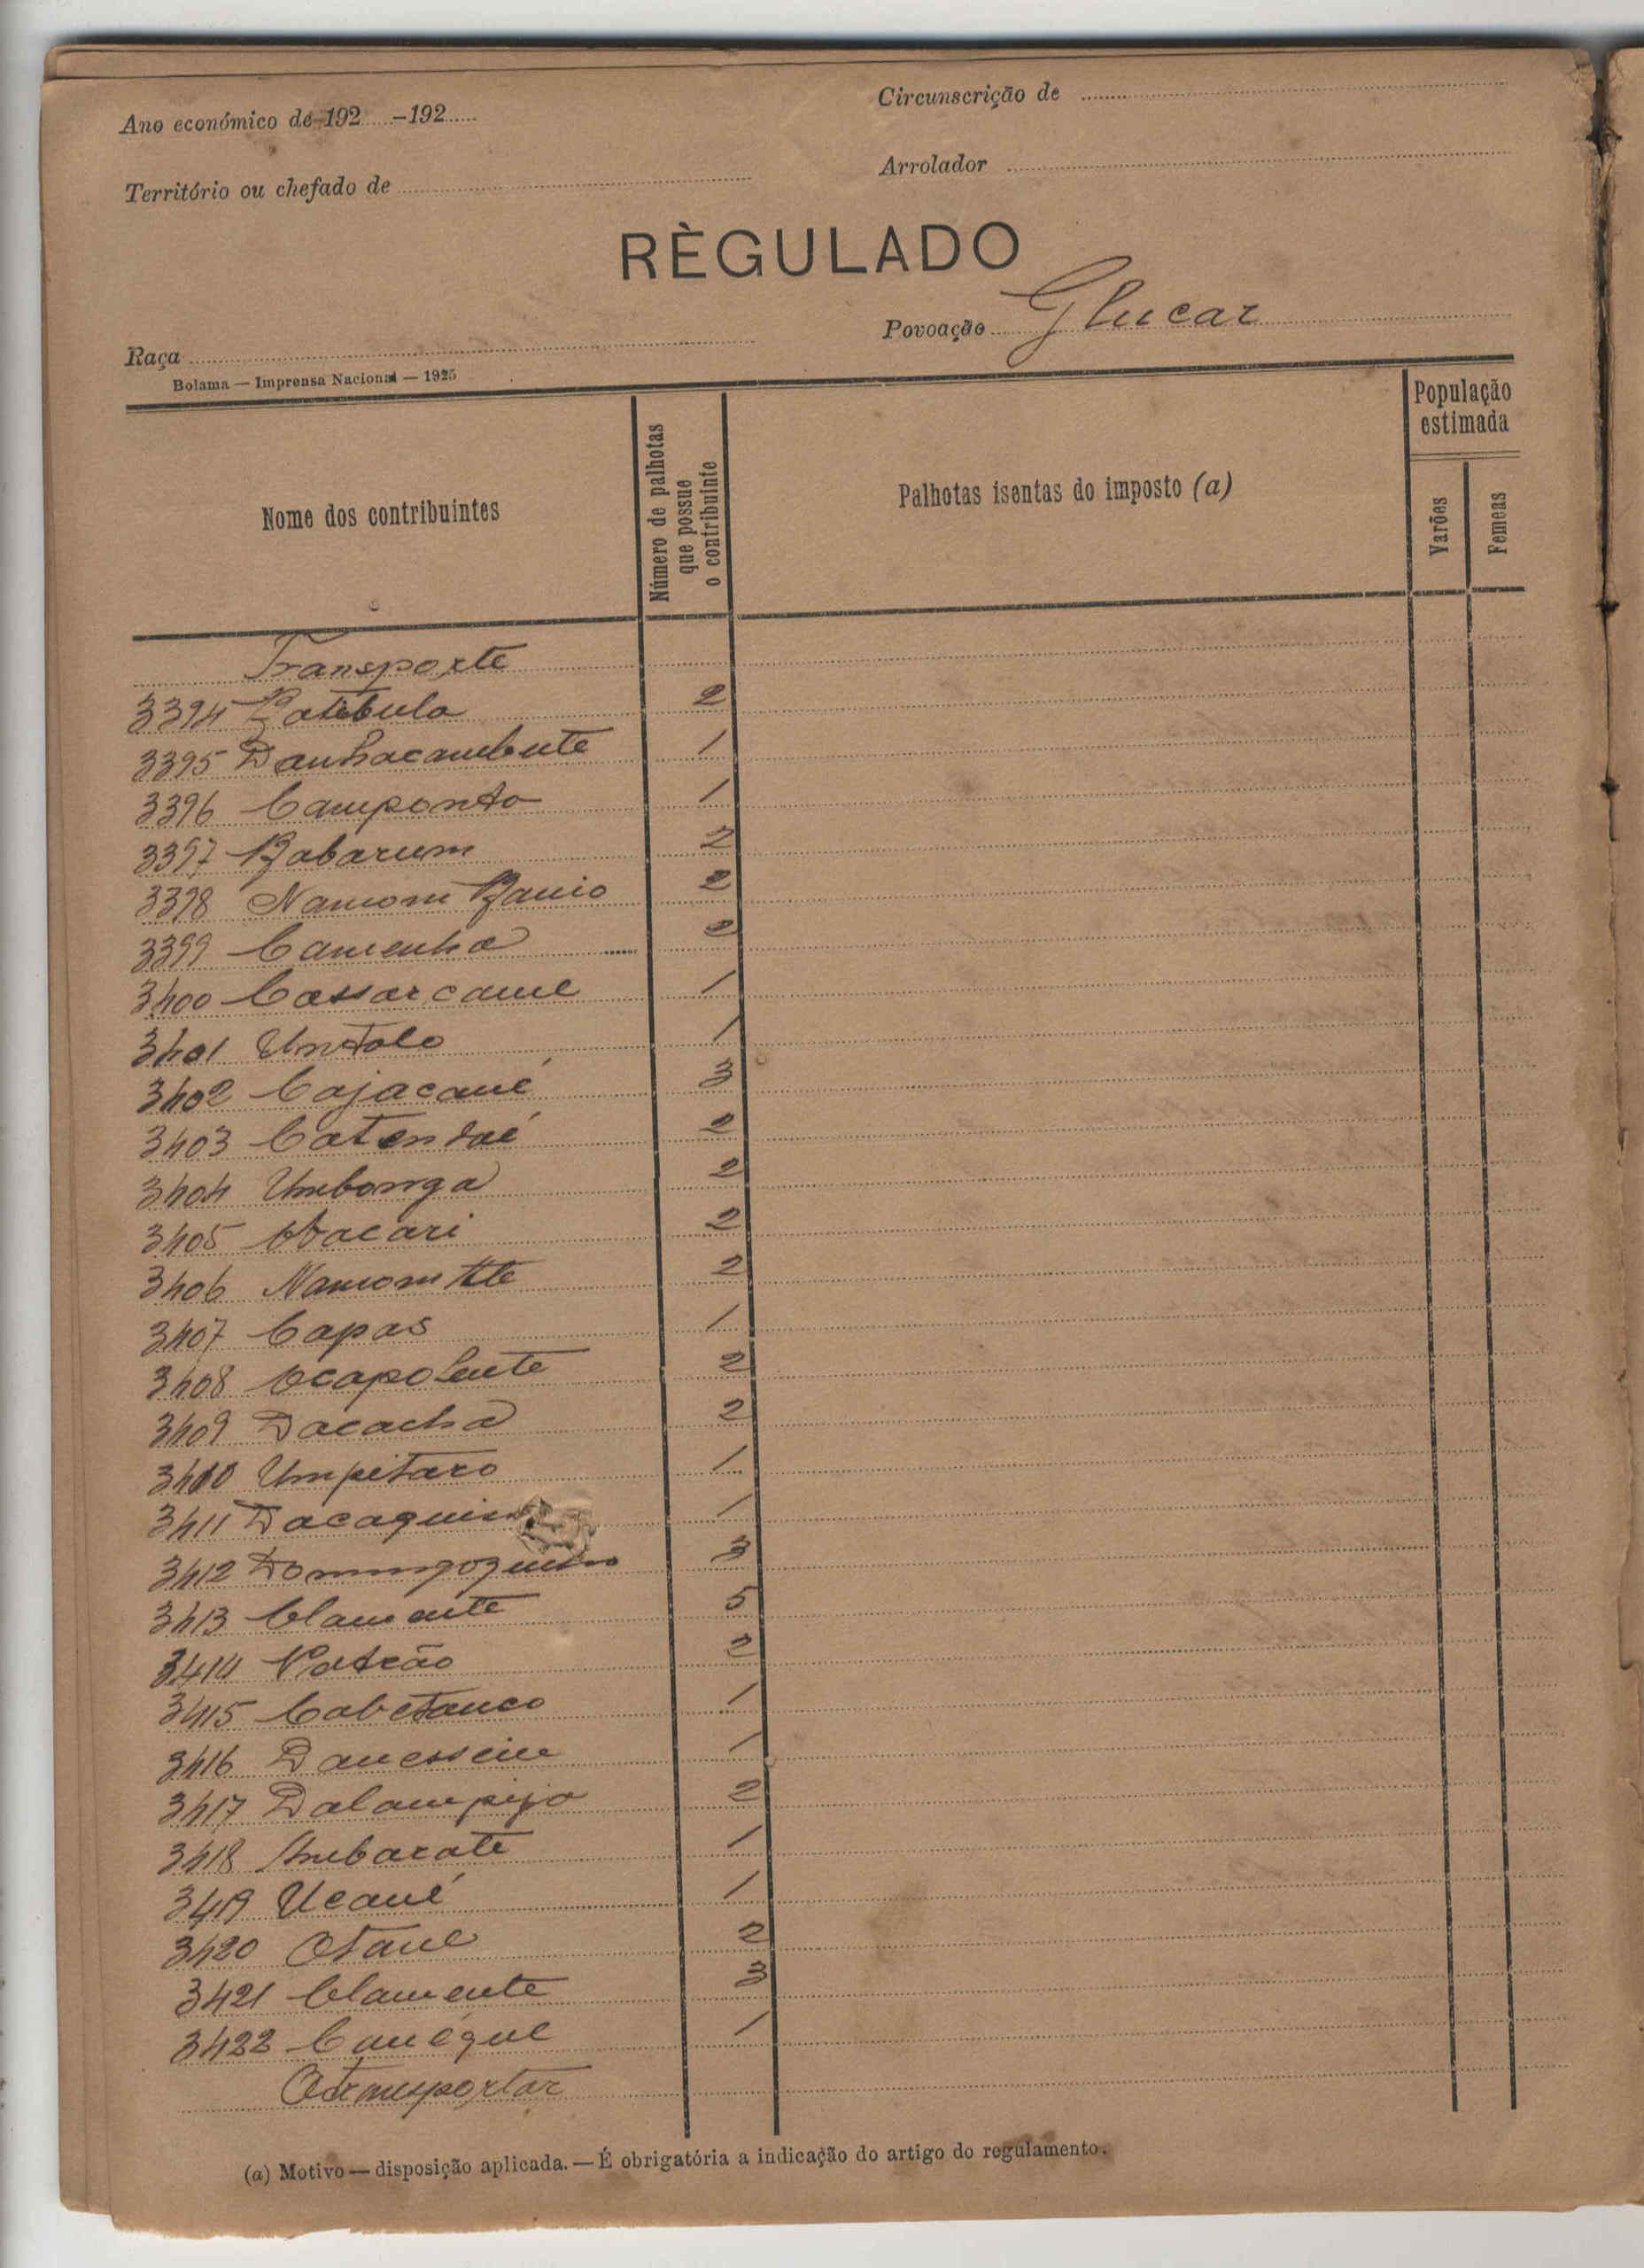 Ano económico de 192 -192
Circunscrição de
Território ou chefado de
Arrolador
RÈGULADO
Povoação Glucar
Raça
Bolama — Imprensa Nacional — 1925
Nome dos contribuintes
Número de palhotas
que possue
o contribuinte
Palhotas isentas do imposto (a)
População
estimada
Varões
Femeas
Transporte
3394 Batibula 2
3395 Danhacambute 1
3396 Camponto 1
3397 Babarum 2
3398 Namom Banio 2
3399 Camenha 2
3400 Cassarcame 1
3401 Untolo 1
3402 Cajacamé 3
3403 Catendaé 2
3404 Umbonga 2
3405 2
3406 Namom 2
3407 Capas 1
3408 Ocapolente 2
3409 Dacacha 2
3410 Umpitaro 1
3411 1
3412 3
3413 Clamente 5
3414 Patrão 2
3415 Cabetanco 1
3416 1
3417 Dalampijo 2
3418 Umbarate 1
3419 Ucamé 1
3420 Otame 2
3421 Clamente 3
3422 Canégue 1
A transportar
(a) Motivo — disposição aplicada. — É obrigatória a indicação do artigo do regulamento.